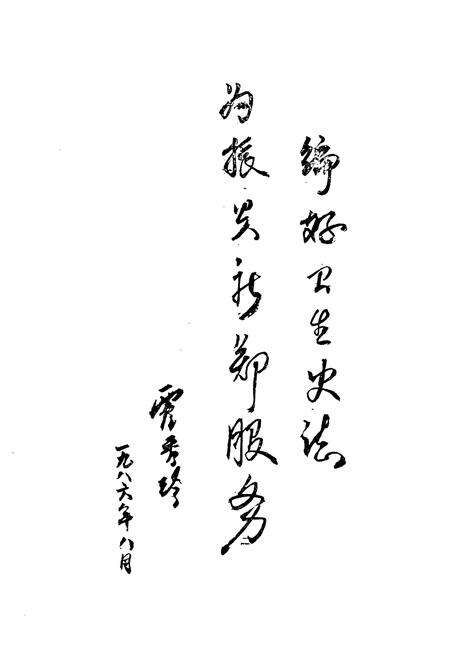 编好卫生史志
为振兴新郑服务
霍秀玲
一九八六年八月